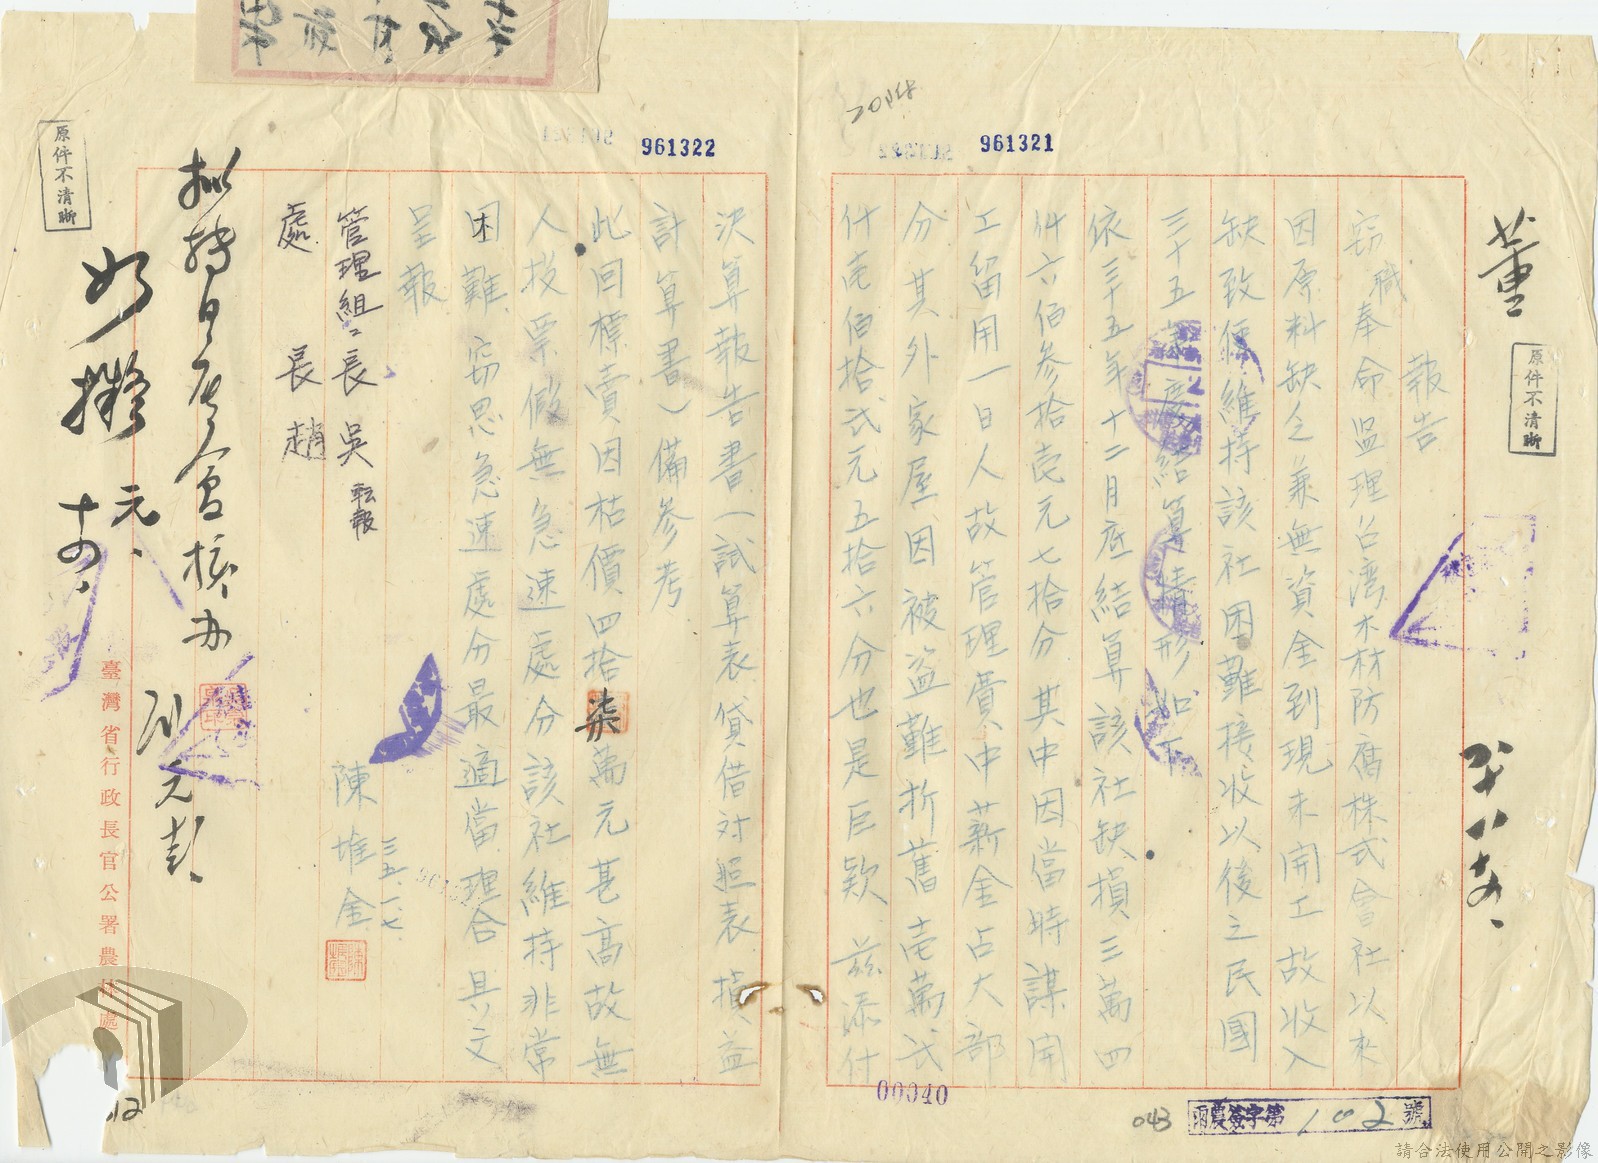 961321
961322
00040
043
雨農簽字第102號
原件不清晰
董
報告
竊職奉命监理台湾木材防腐株式會社以来
因原料缺乏兼無資金到現未開工故收入
缺致使維持該社困難接收以後之民國
三十五年度結算情形如下
依三十五年十二月底結算該社缺損三萬四
仟六佰参拾壱元七拾分其中因當時謀開
工留用一日人故管理費中薪金占大部
分其外家屋因被盗難折舊壱萬弍
仟壱佰拾弍元五拾六分也是巨欵茲添付
決算報告書(試算表貸借対照表損益
計算書)備参考
此回標賣因枯價四拾柒萬元甚高故無
人投票假無急速處分該社維持非常
困難窃思急速處分最適當理合具文
呈報
管理組組長吳 転報
處長趙
陳堆金
三五、一、七、
擬轉日產會核办
如擬
元、
十四、
原件不清晰
臺灣省行政長官公署農林處
請合法使用公開之影像